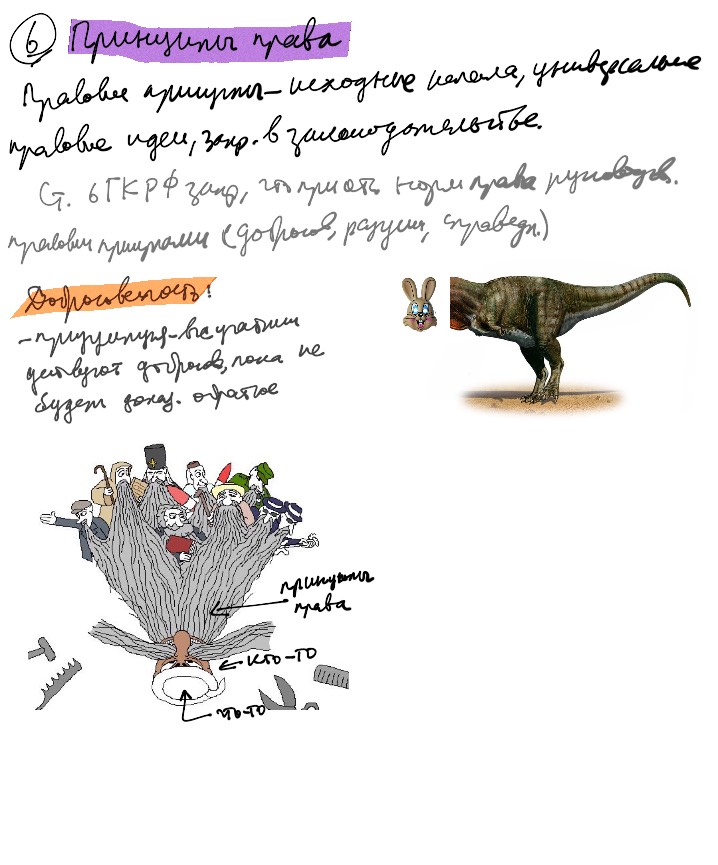 6 Принципы права
Правовые принципы – исходные начала, универсальные
правовые идеи, закр. в законодательстве.
Ст. 6 ГК РФ закр, что при отс норм права руководств.
правовыми принципами (добросов, разумн, справедл.)
Добросовестность:
- презумпция - все участники
действуют добросов, пока не
будет доказ. обратное
принципы
права
кто-то
что-то